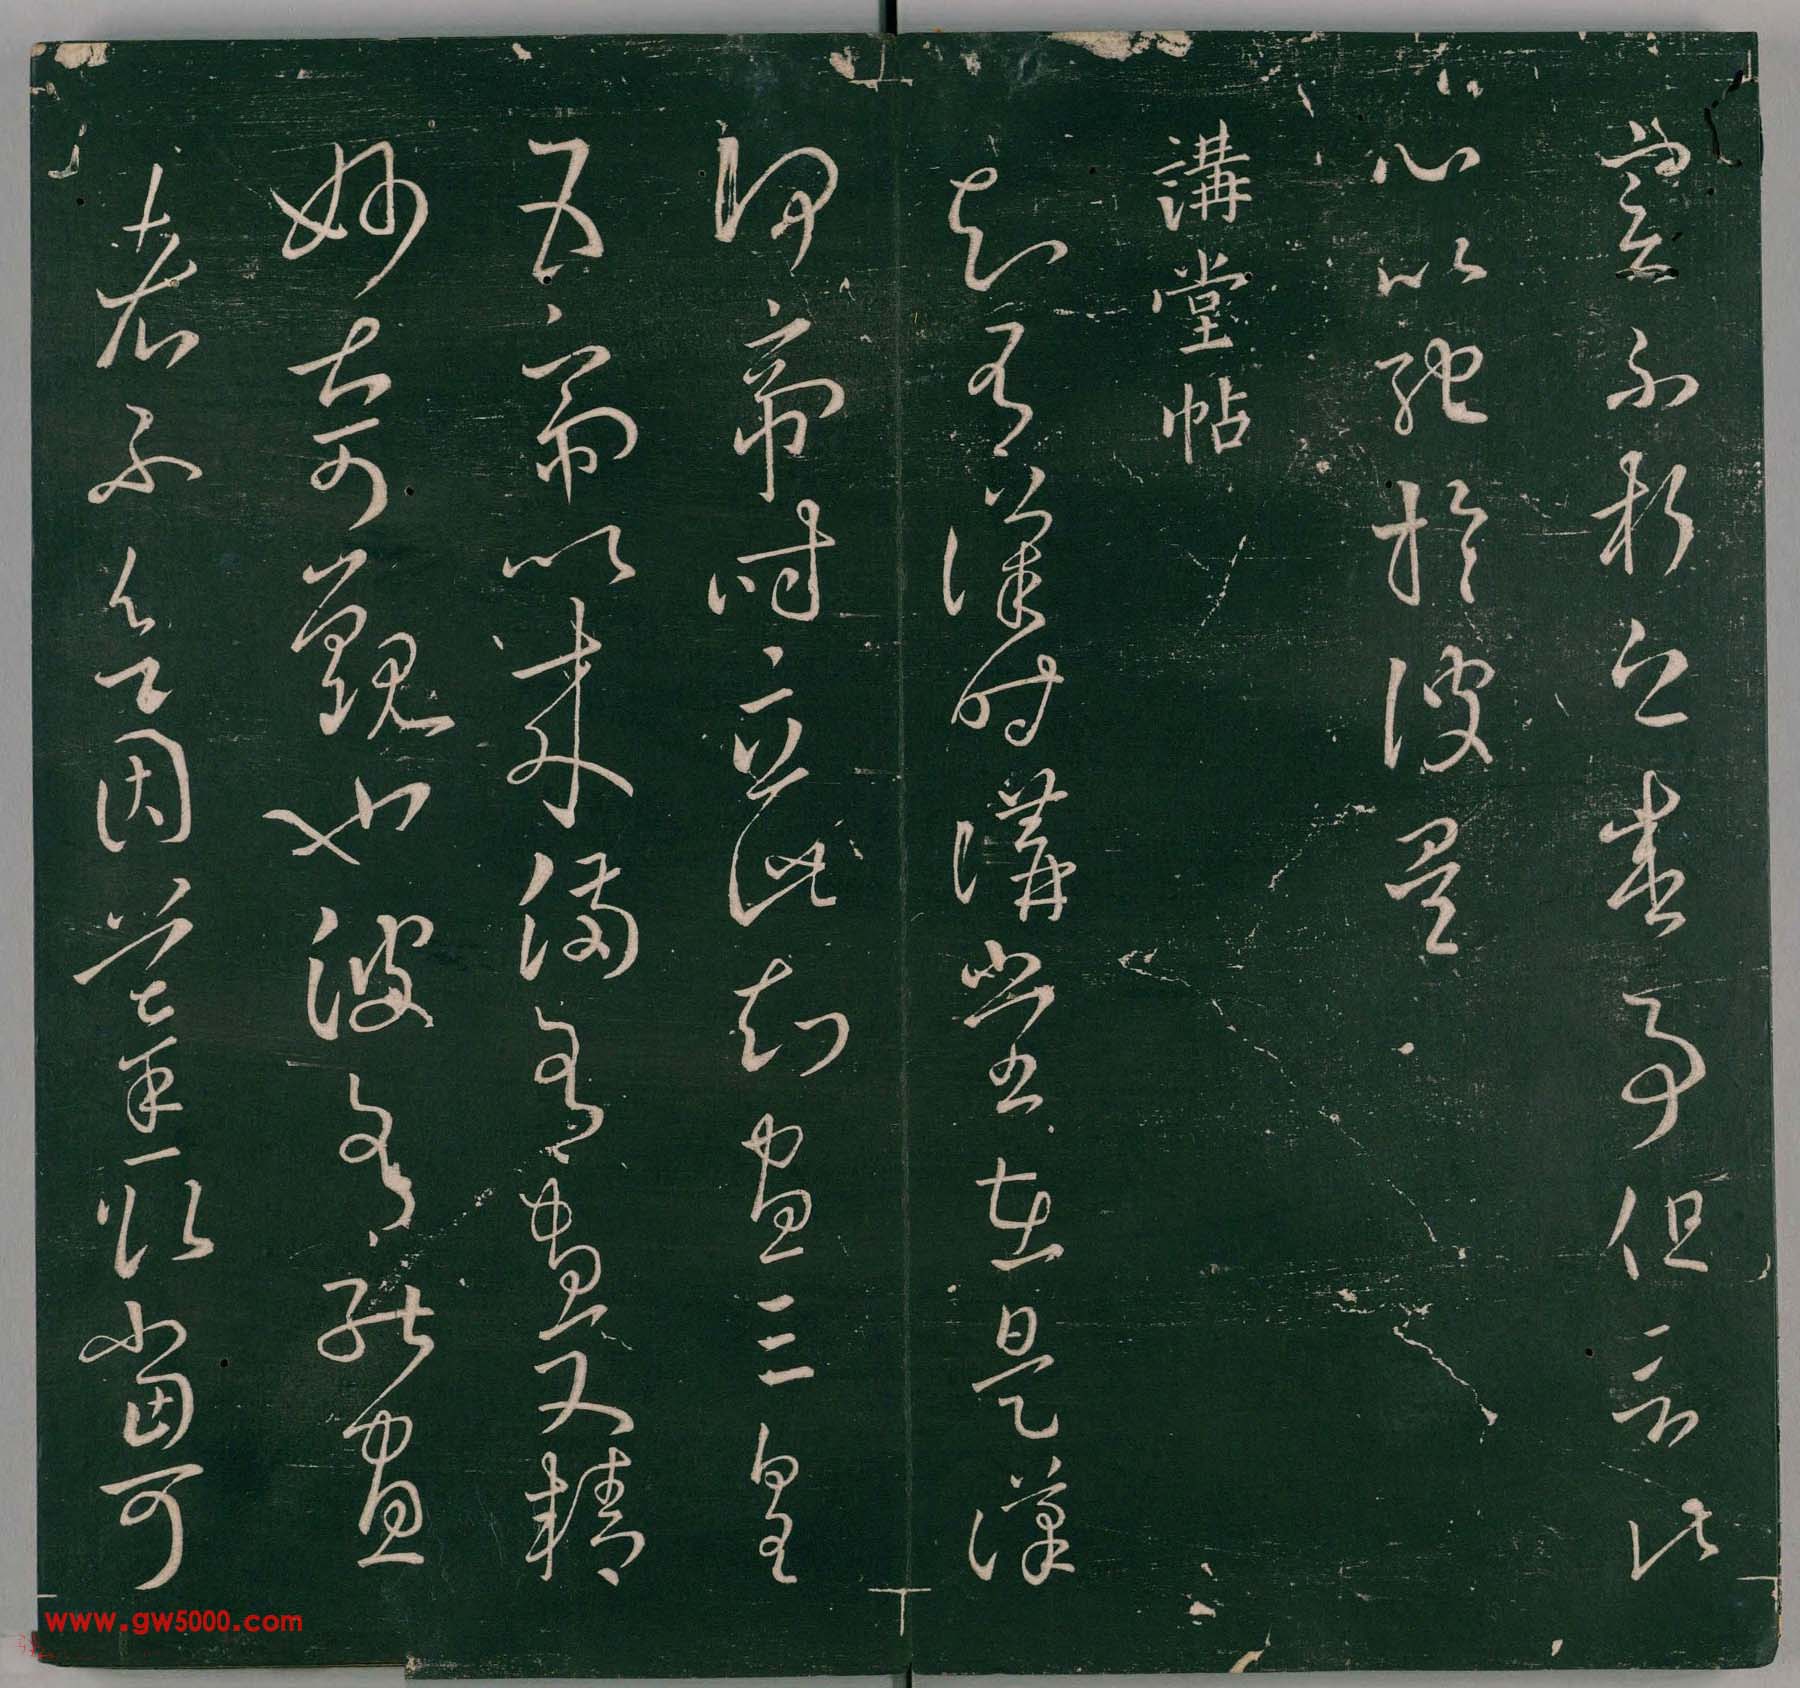 實不朽之盛事但言此
心以馳於彼矣
講堂帖
知有漢時講堂在是漢
何帝時立此知畫三皇
五帝以來備有畫又精
妙甚可觀也彼有能畫
者不欲因摹取當可
www.gw5000.com